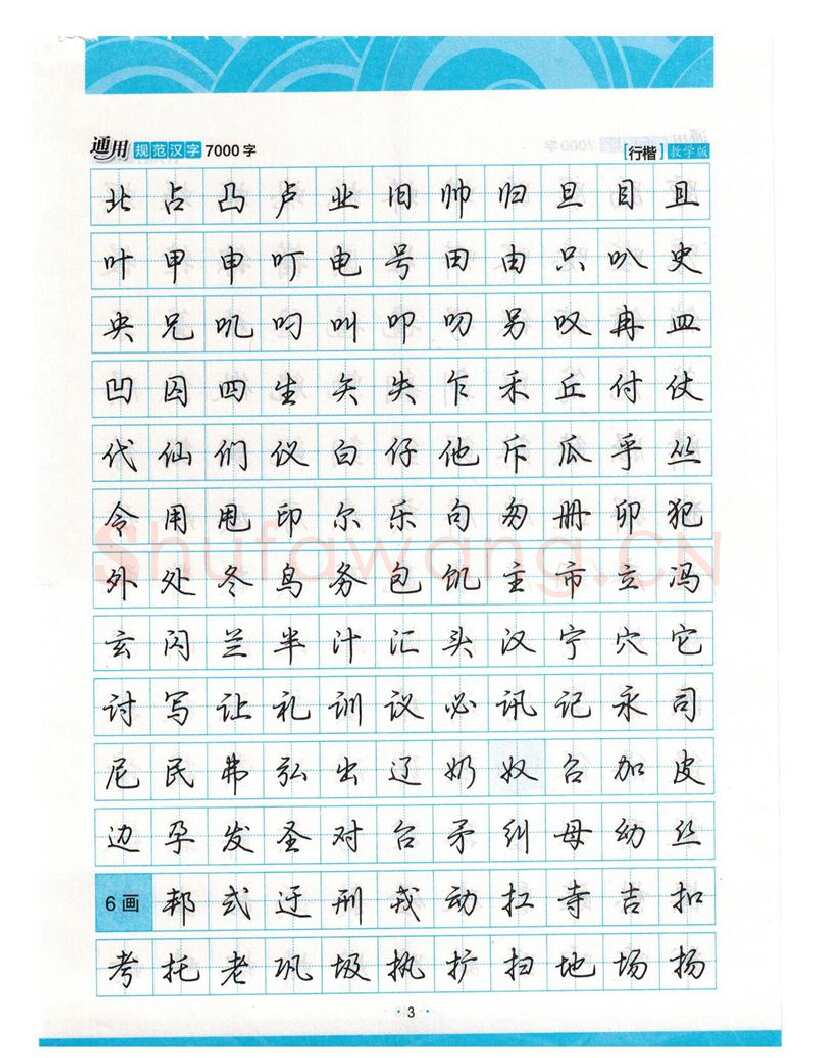 通用 规范汉字 7000字 [行楷] 教学版
北 占 凸 卢 业 旧 帅 归 旦 目 且
叶 甲 申 叮 电 号 田 由 只 叭 史
央 兄 叽 叼 叫 叩 叨 另 叹 冉 皿
凹 囚 四 生 矢 失 乍 禾 丘 付 仗
代 仙 们 仪 白 仔 他 斥 瓜 乎 丛
令 用 甩 印 尔 乐 句 匆 册 卯 犯
外 处 冬 鸟 务 包 饥 主 市 立 冯
玄 闪 兰 半 汁 汇 头 汉 宁 穴 它
讨 写 让 礼 训 议 必 讯 记 永 司
尼 民 弗 弘 出 辽 奶 奴 召 加 皮
边 孕 发 圣 对 台 矛 纠 母 幼 丝
6画 邦 式 迂 刑 戎 动 扛 寺 吉 扣
考 托 老 巩 圾 执 扩 扫 地 场 扬
Shufawang.CN
3